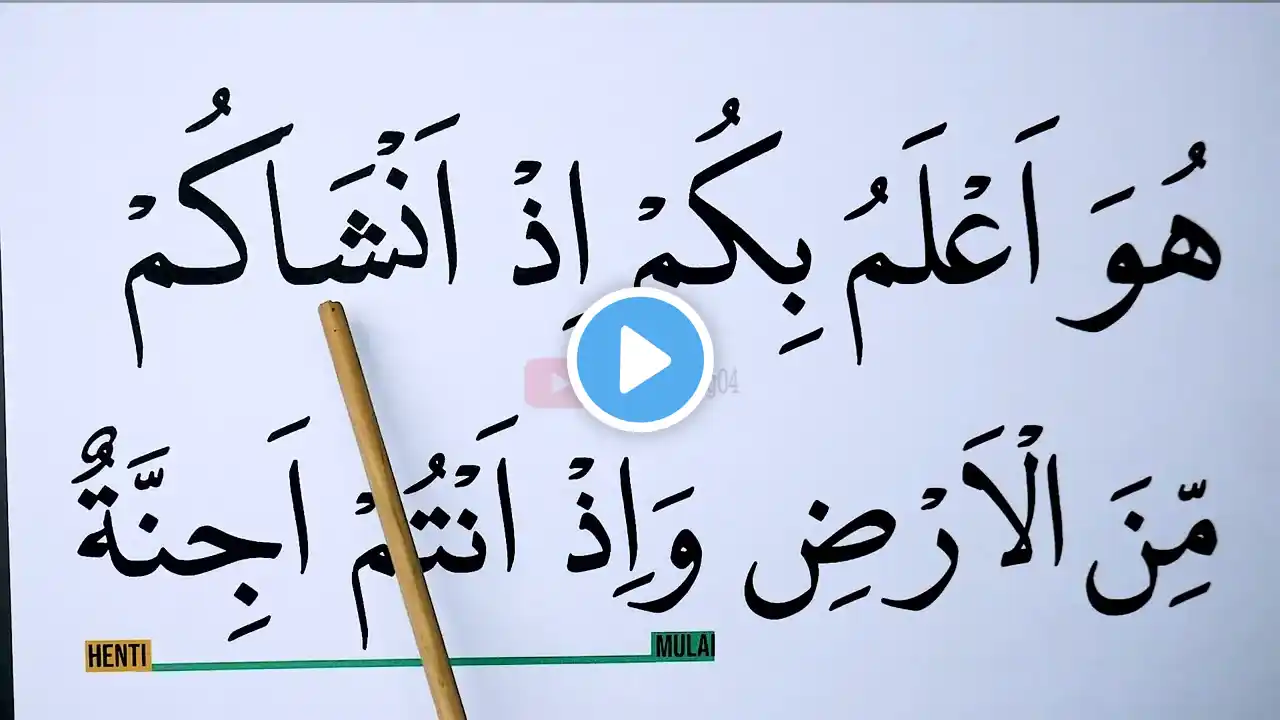 هُوَ اَعْلَمُ بِكُمْ اِذْ اَنْشَاَكُمْ
مِّنَ الْاَرْضِ وَاِذْ اَنْتُمْ اَجِنَّةٌ
HENTI MULAI